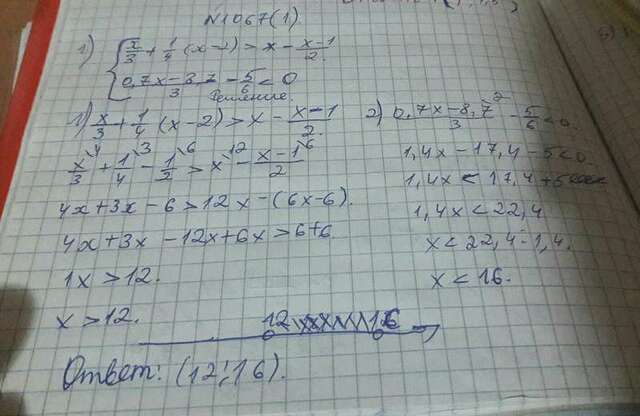 N1067(1).
1) { x/3 + 1/4 (x-2) > x - x-1/2
0,7x-3,7/3 - 5/6 < 0
Решение.
1) x/3 + 1/4 (x-2) > x - x-1/2
x/3 \4 + 1/4 \3 - 1/2 \6 > x \12 - x-1/2 \6
4x+3x-6>12x-(6x-6).
4x+3x-12x+6x>6+6.
1x>12.
x>12.
2) 0,7x-8,7/3 \2 - 5/6 < 0
1,4x-17,4-5<0
1,4x<17,4+5
1,4x<22,4
x<22,4:1,4.
x<16.
12 16
Ответ: (12;16).